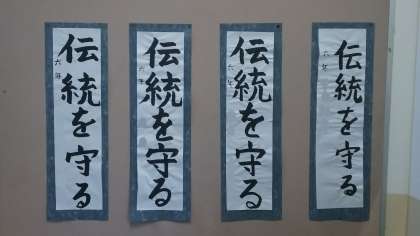 伝統を守る
六年
伝統を守る
六年
伝統を守る
六年
伝統を守る
六年